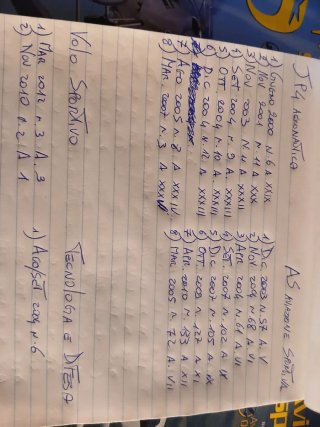 JP4 AERONAUTICA
1) GIUGNO 2000 N. 6 A XXIX
2) NOV 2001 N. 11 A XXX
3) NOV 2003 N. 11 A XXXII
4) SET 2004 N. 9 A. XXXIII
5) OTT 2004 N. 10 A. XXXIII
6) DIC 2004 N. 12 A. XXXIII
7) AGO 2005 N. 8 A XXXIV
8) MAR 2007 N. 3 A XXXVI
AS AVIAZIONE SPORTIVA
1) DIC 2003 N. 57 A. V
2) NOV 2004 N. 68 A. VI
3) APR 2004 N. 61 A. VI
4) SET 2007 N. 102 A. IX
5) DIC 2007 N. 105 A. IX
6) OTT 2009 N. 127 A. XI
7) APR 2010 N. 133 A. XII
8) MAR 2005 N. 72 A. VII
VOLO SPORTIVO
1) MAR 2012 N. 3 A. 3
2) NOV 2010 N. 2 A 1
TECNOLOGIA E DIFESA
1) AGO/SET 2004 N. 6